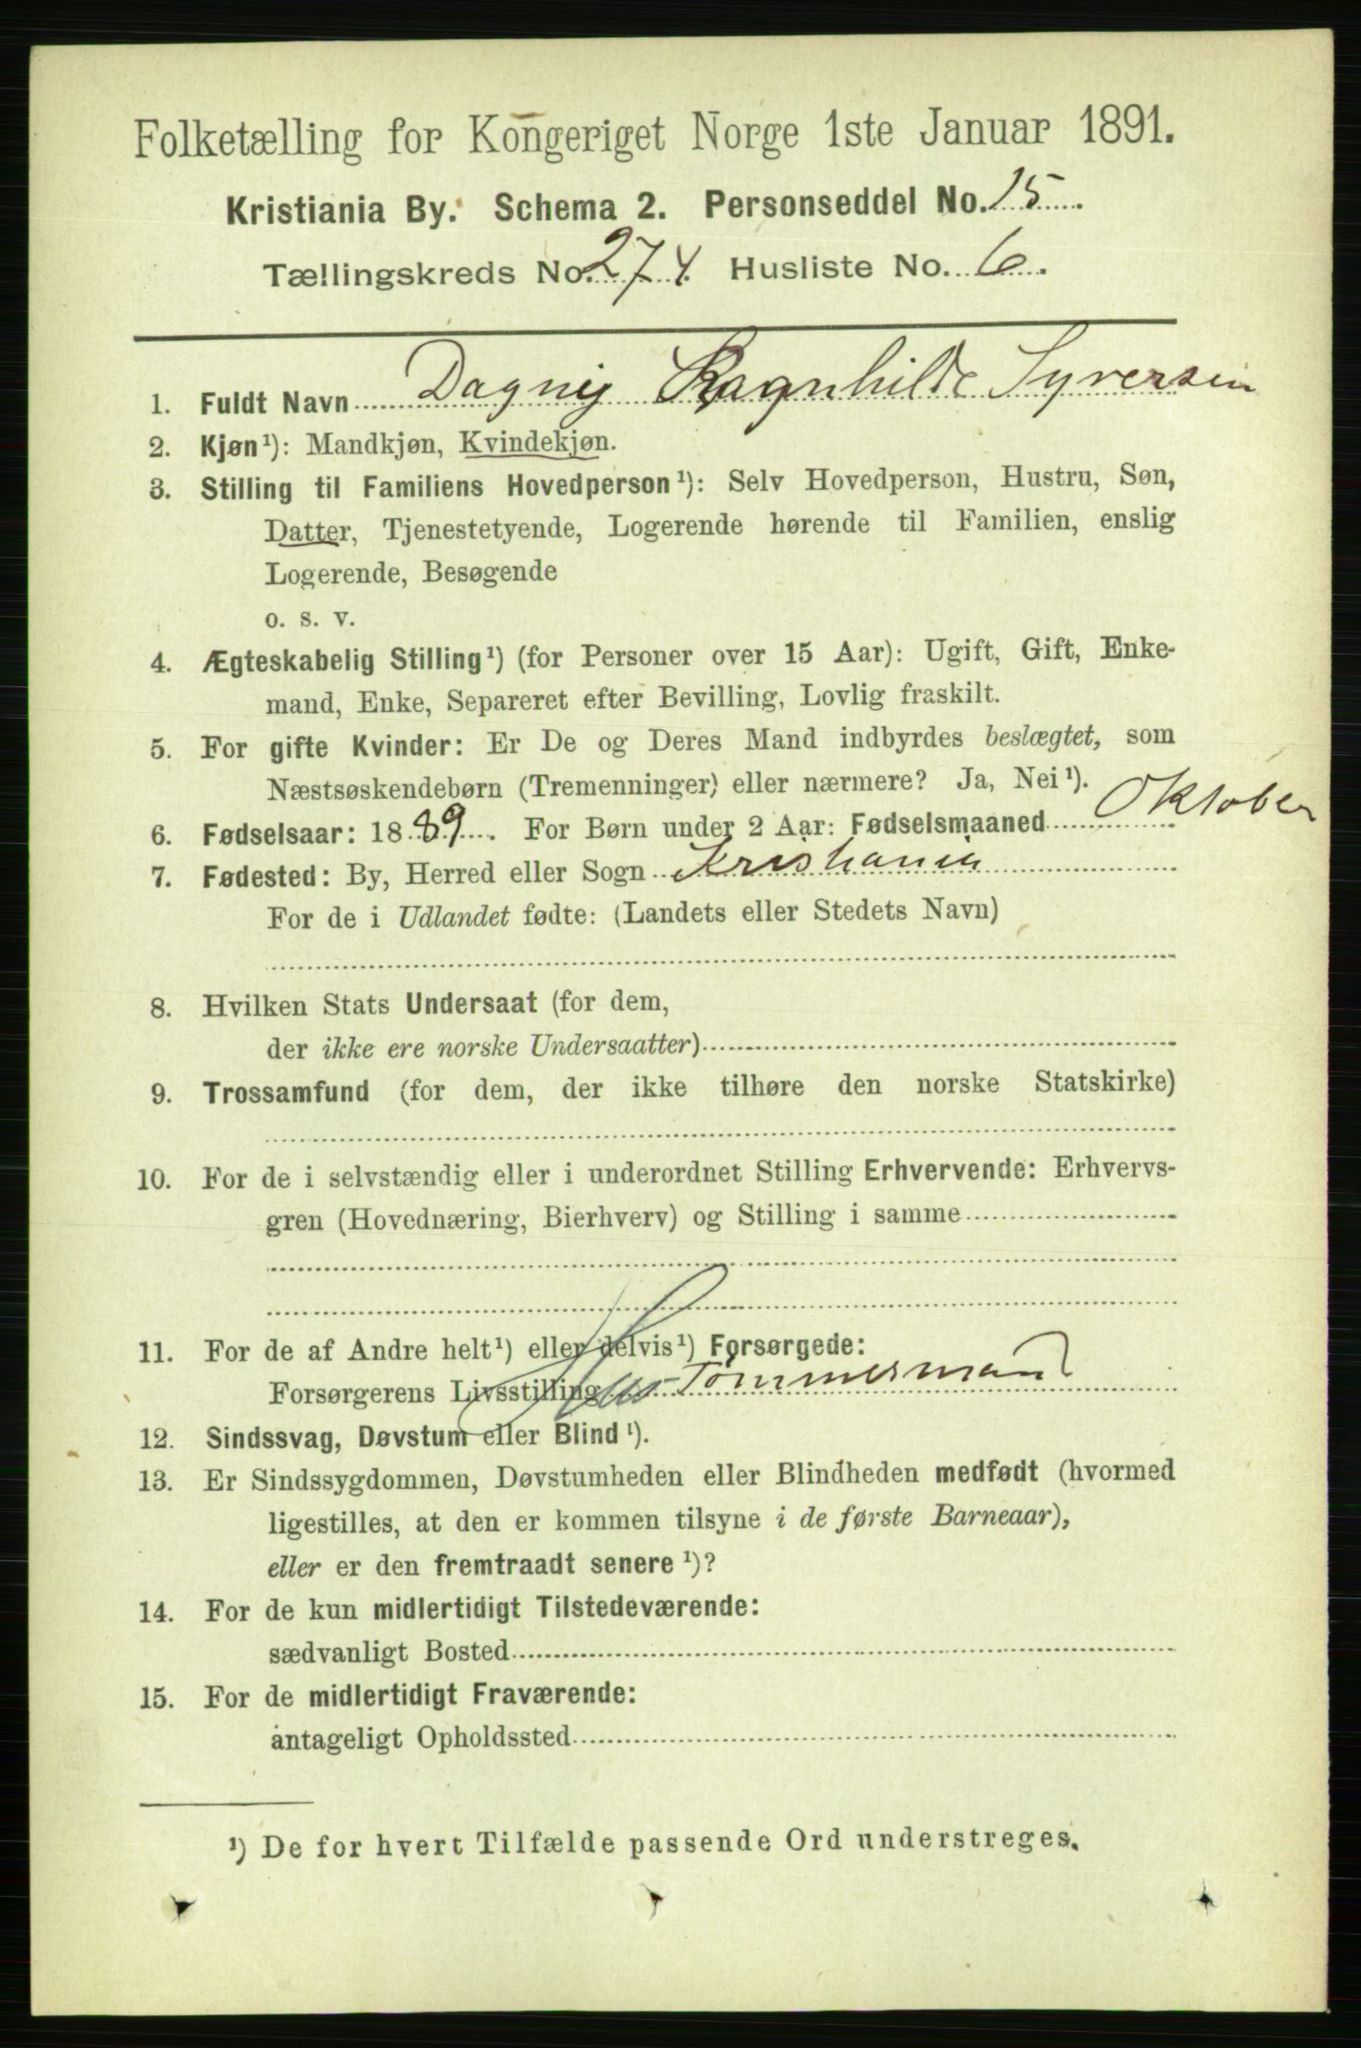 Folketælling for Kongeriget Norge 1ste Januar 1891.
Kristiania By. Schema 2. Personseddel No. 15.
Tællingskreds No. 274. Husliste No. 6.
1. Fuldt Navn Dagny Ragnhilde Syversen
2. Kjøn¹): Mandkjøn, Kvindekjøn.
3. Stilling til Familiens Hovedperson¹): Selv Hovedperson, Hustru, Søn,
Datter, Tjenestetyende, Logerende hørende til Familien, enslig
Logerende, Besøgende
o. s. v.
4. Ægteskabelig Stilling¹) (for Personer over 15 Aar): Ugift, Gift, Enke-
mand, Enke, Separeret efter Bevilling, Lovlig fraskilt.
5. For gifte Kvinder: Er De og Deres Mand indbyrdes beslægtet, som
Næstsøskendebørn (Tremenninger) eller nærmere? Ja, Nei¹).
6. Fødselsaar: 1889. For Børn under 2 Aar: Fødselsmaaned Oktober
7. Fødested: By, Herred eller Sogn Kristiania
For de i Udlandet fødte: (Landets eller Stedets Navn)
8. Hvilken Stats Undersaat (for dem,
der ikke ere norske Undersaatter)
9. Trossamfund (for dem, der ikke tilhøre den norske Statskirke)
10. For de i selvstændig eller i underordnet Stilling Erhvervende: Erhvervs-
gren (Hovednæring, Bierhverv) og Stilling i samme
11. For de af Andre helt¹) eller delvis¹) Forsørgede:
Forsørgerens Livsstilling Tømmermand
12. Sindssvag, Døvstum eller Blind¹).
13. Er Sindssygdommen, Døvstumheden eller Blindheden medfødt (hvormed
ligestilles, at den er kommen tilsyne i de første Barneaar),
eller er den fremtraadt senere¹)?
14. For de kun midlertidigt Tilstedeværende:
sædvanligt Bosted
15. For de midlertidigt Fraværende:
antageligt Opholdssted
¹) De for hvert Tilfælde passende Ord understreges.